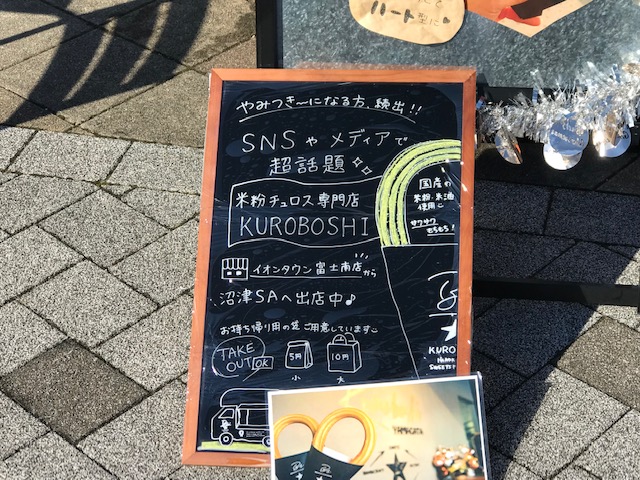 ハート型に
やみつき〜になる方、続出!!
SNSや メディアで
超話題
米粉チュロス専門店
KUROBOSHI
国産の
米粉・米油
使用
サクサク
もちもち!
イオンタウン富士南店から
沼津SAへ出店中♪
お持ち帰り用の袋ご用意しています
TAKE
OUT OK
5円
10円
小
大
KURO